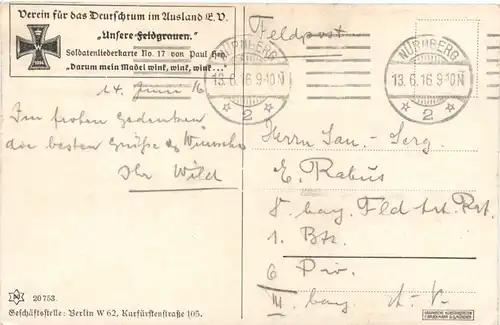 Verein für das Deutschtum im Ausland E.V.
„Unsere Feldgrauen.“
Soldatenliederkarte No. 17 von Paul Hey
„Darum mein Mädel wink, wink, wink...“
1914
Feldpost
NÜRNBERG
13.6.16 9-10N
2
NÜRNBERG
13.6.16 9-10N
2
14. Juni 16
Im frohen Gedenken
die besten Grüße & Wünsche
Ihr Wild
Herrn San.-Serg.
E. Rabus
8. bay. Fld. Art. Rgt.
1. Btt.
6 Div.
III. bay. A.-K.
20753.
Geschäftsstelle: Berlin W 62, Kurfürstenstraße 105.